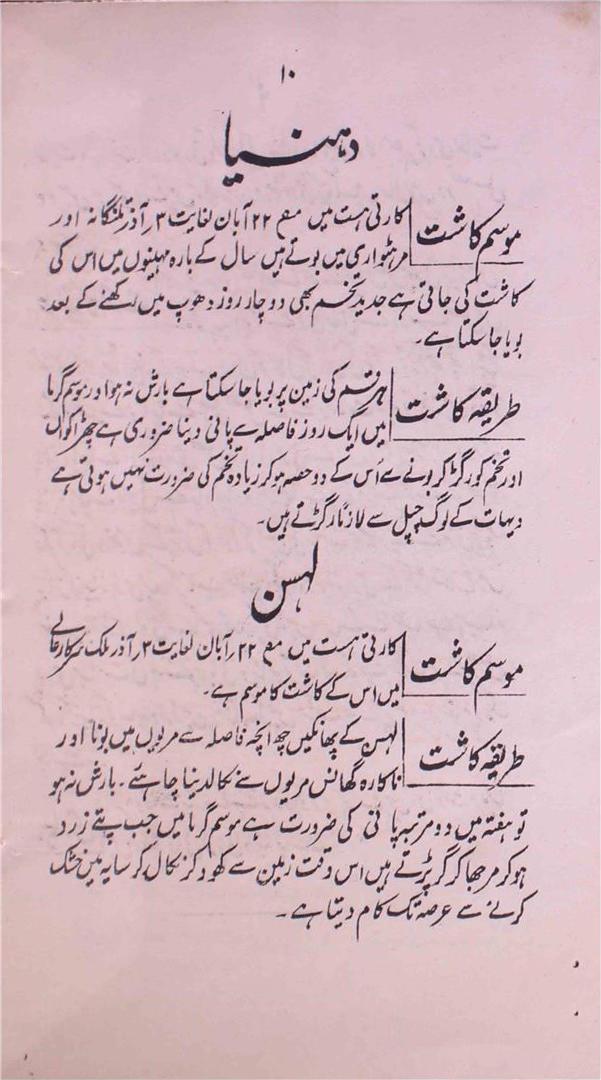 ۱۰
دہنیا
موسم کاشت
کارتی ہست میں مع ۲۲ آبان لغایت ۳؍ آذر تلنگانہ اور
مرہٹواری میں بوتے ہیں سال کے بارہ مہینوں میں اس کی
کاشت کی جاتی ہے جدید تخم بھی دو چار روز دھوپ میں رکھنے کے بعد
بویا جا سکتا ہے۔
طریقہ کاشت
ہر قسم کی زمین پر بویا جا سکتا ہے بارش نہ ہو اور موسم گرما
میں ایک روز فاصلہ سے پانی دینا ضروری ہے چھڑاکوں
اور تخم کو رگڑ کر بونے سے اُس کے دو حصہ ہو کر زیادہ تخم کی ضرورت نہیں ہوتی ہے
دیہات کے لوگ چپل سے لازماً رگڑتے ہیں۔
لہسن
موسم کاشت
کارتی ہست میں مع ۲۲؍ آبان لغایت ۳؍ آذر ملک سرکار عالی
میں اس کے کاشت کا موسم ہے۔
طریقہ کاشت
لہسن کے پھانکیں چھ انچہ فاصلہ سے مربوں میں بونا اور
ناکارہ گھانس مربوں سے نکالدینا چاہئے۔ بارش نہ ہو
تو ہفتہ میں دو مرتبہ پانی کی ضرورت ہے موسم گرما میں جب پتے زرد
ہو کر مرجھا کر گر پڑتے ہیں اس وقت زمین سے کھود کر نکال کر سایہ میں خشک
کرنے سے عرصہ تک کام دیتا ہے۔